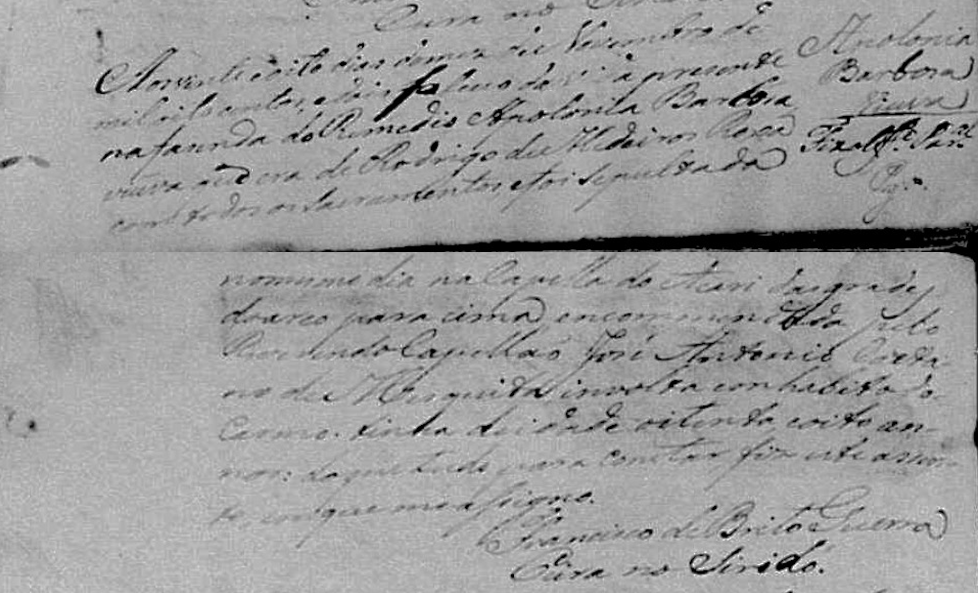 Cura no
Aos vinte oito dias do mez de Novembro de
mil oito centos, e dois faleceo da vida presente
na fazenda do Remedio Apolonia Barbosa
viuva que era de Rodrigo de Medeiros Rocha
com todos os Sacramentos, e foi sepultada
Apolonia
Barbosa
viuva
Fr.ª do
Pg.
no mesmo dia na Capella do Acari das grades
do arco para cima encommendada pelo
Reverendo Capellão José Antonio Caeta-
no de Mesquita involta com habito do
Carmo. tinha de idade oitenta e oito an-
nos: do que tudo para constar fiz este assen-
to em que me assigno.
Francisco de Brito Guerra
Cura no Siridó.